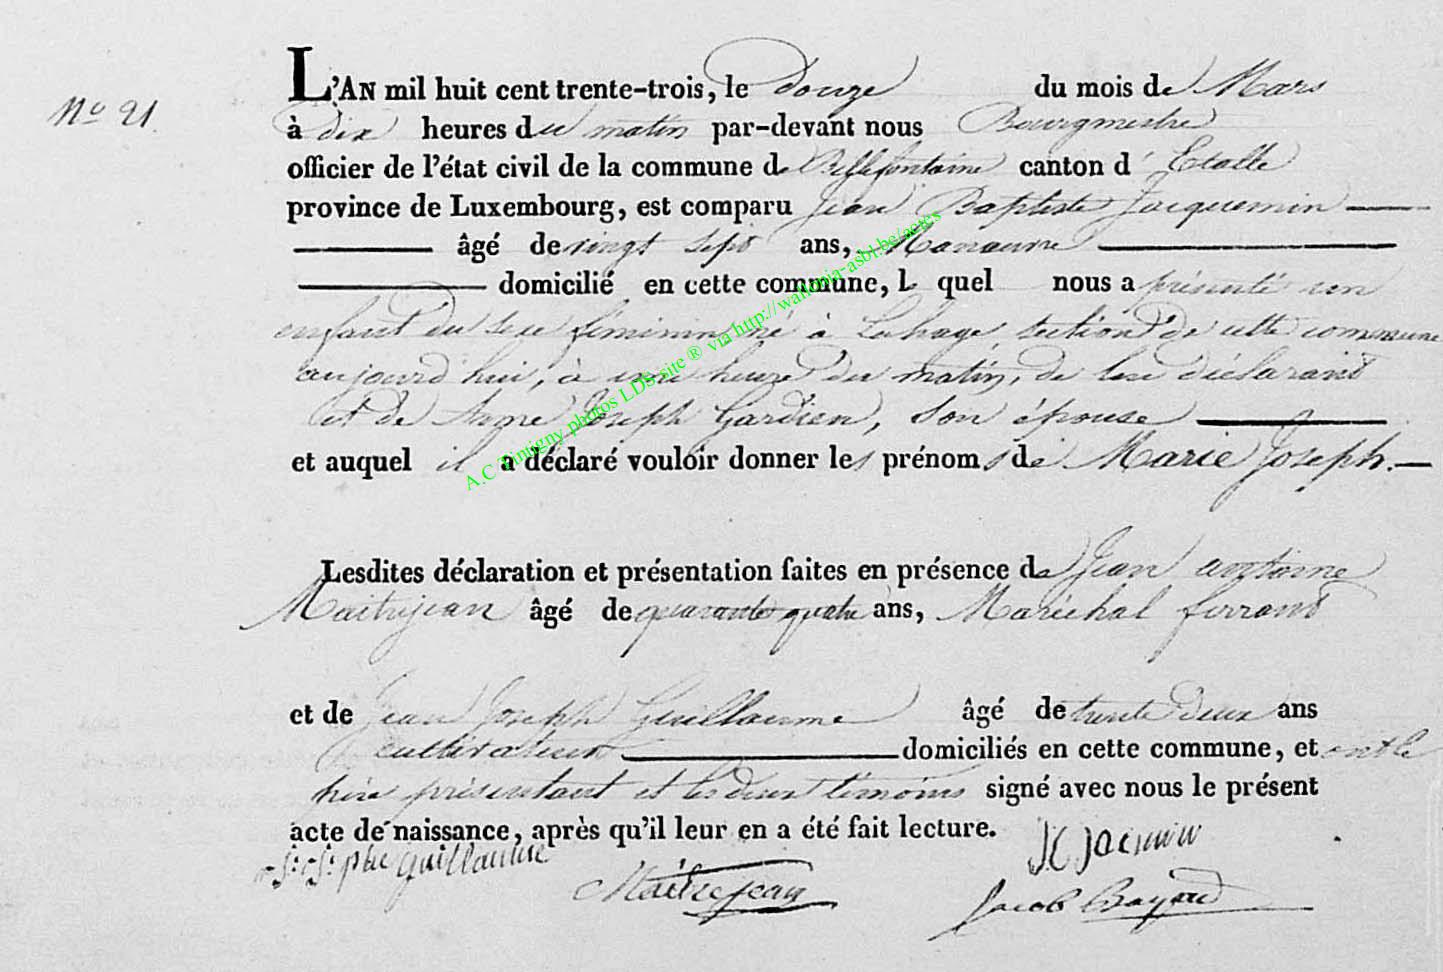 L'AN mil huit cent trente-trois, le douze du mois de Mars
No 21.
à dix heures du matin par-devant nous Bourgmestre
officier de l'état civil de la commune de Bellefontaine canton d'Etalle
province de Luxembourg, est comparu Jean Baptiste Jacquemin
âgé de vingt sept ans, Manœuvre
domicilié en cette commune, L quel nous a présenté un
enfant du sexe féminin né à Lahage, section de cette commune
aujourd'hui, à une heure du matin, de lui déclarant
et de Anne Joseph Gardien, son épouse
et auquel il a déclaré vouloir donner les prénoms de Marie Joseph.
Lesdites déclaration et présentation faites en présence de Jean antoine
Maitrejean âgé de quarante quatre ans, Maréchal ferrant
et de Jean Joseph Guillaume âgé de trente deux ans
cultivateur domiciliés en cette commune, et ont le
père présentant et les deux témoins signé avec nous le présent
acte de naissance, après qu'il leur en a été fait lecture.
Guillaume
Maitrejean
Jacob Bayard
A.C Tintigny photos LDS site ® via http://wallonia-asbl.be/actes